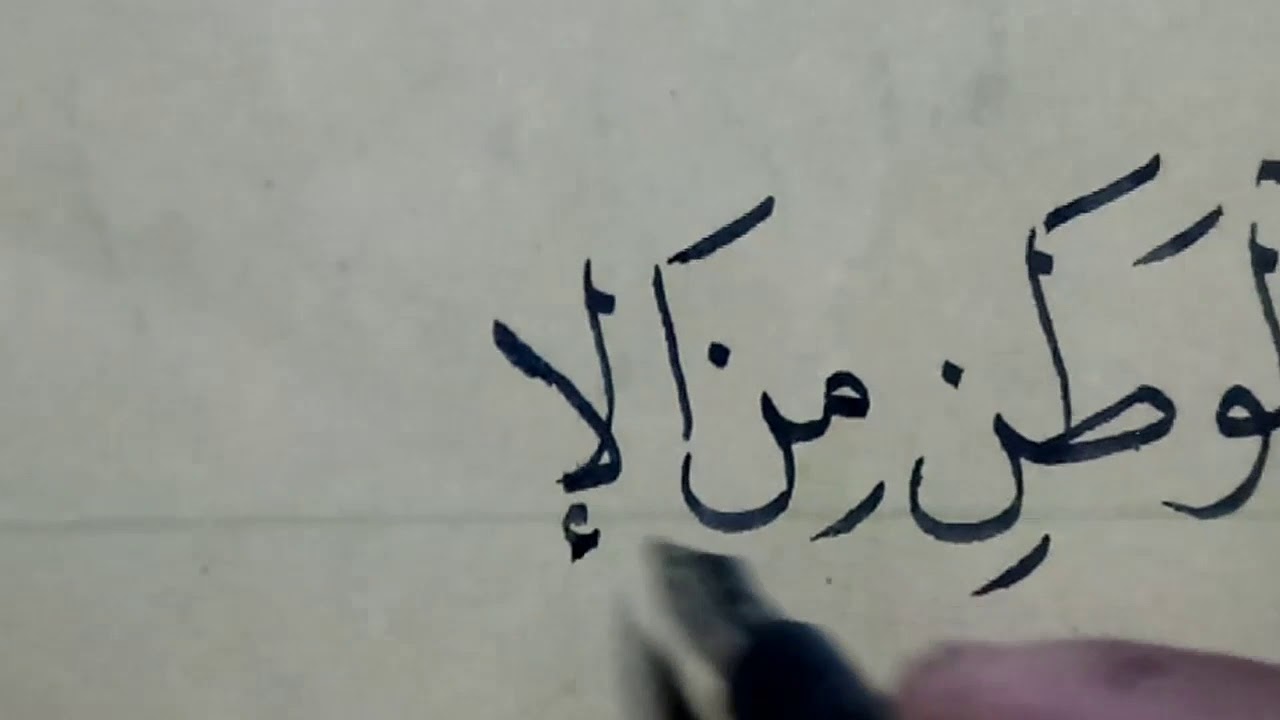 لوَطَنِ مِنَ الإ